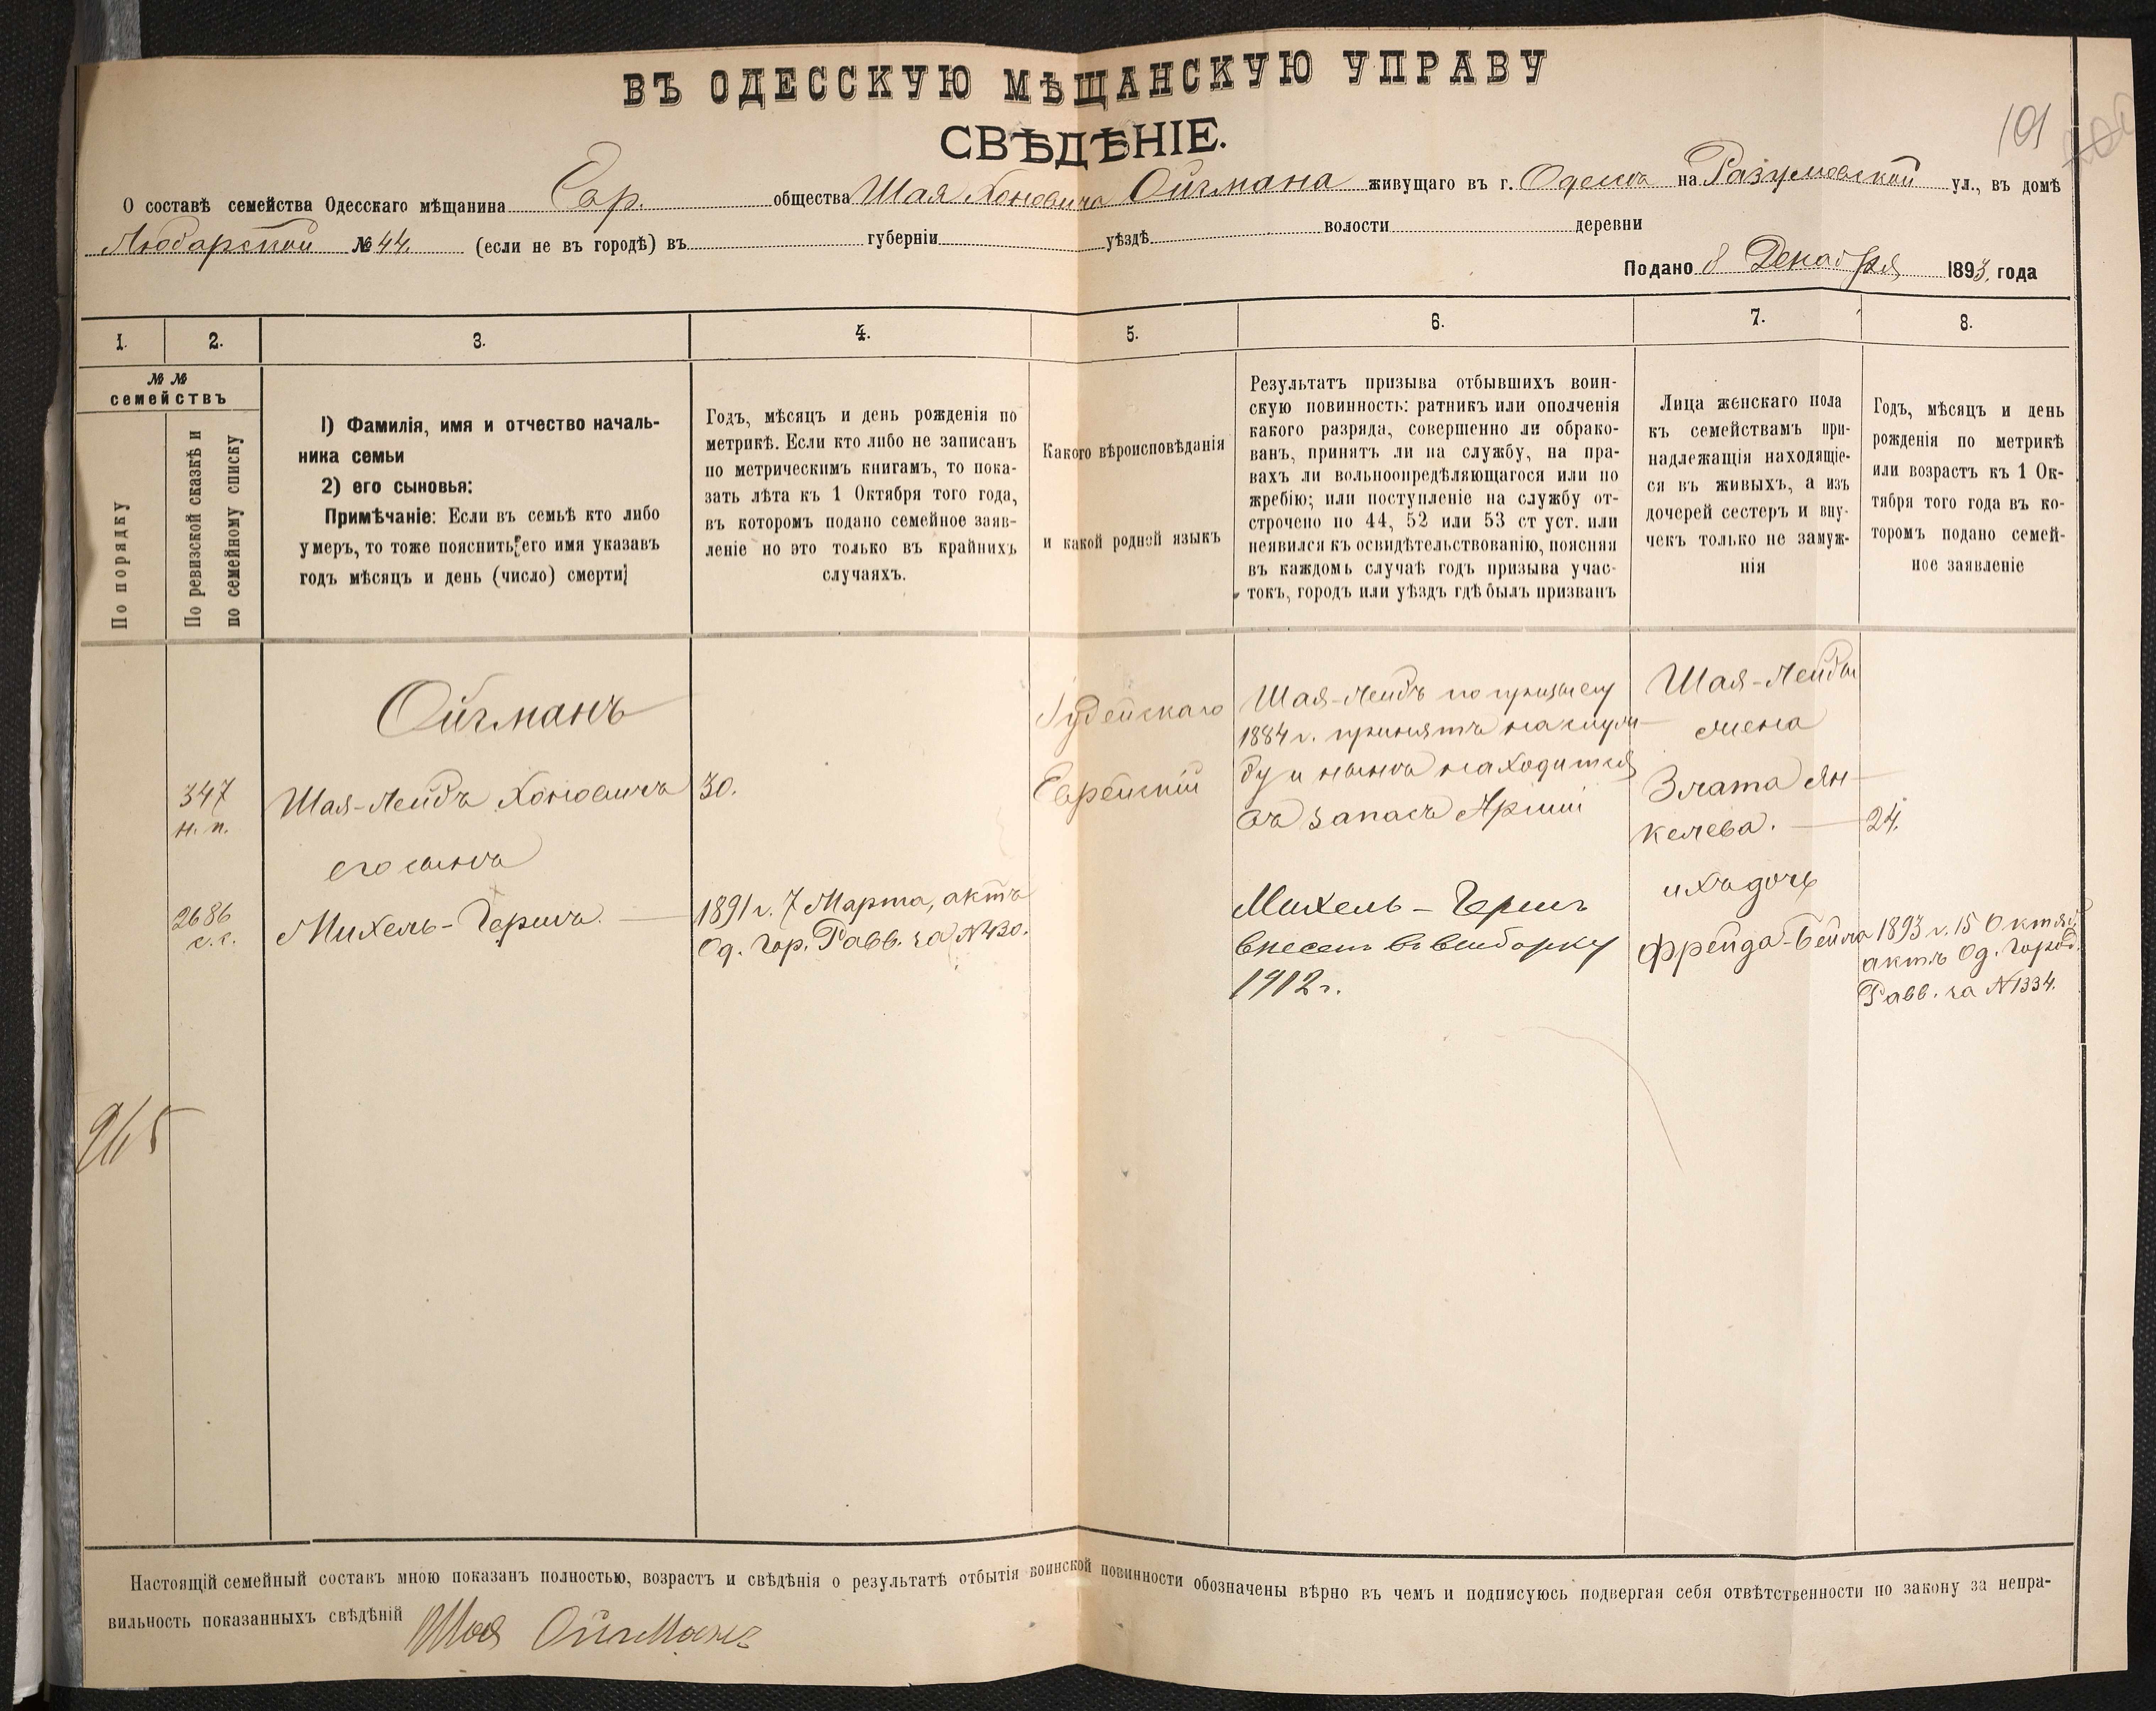 ВЪ ОДЕССКУЮ МѢЩАНСКУЮ УПРАВУ
СВѢДѢНІЕ.
101
О составѣ семейства Одесскаго мѣщанина Евр. общества Шая Хоновича Ойгмана живущаго въ г. Одессѣ на Разумовской ул., въ домѣ
Любарской № 44. (если не въ городѣ) въ губерніи уѣздѣ волости деревни
Подано 8 Декабря 1893. года
1. 2. 3. 4. 5. 6. 7. 8.
№ №
семействъ
По порядку
По ревизской сказкѣ и
по семейному списку
1) Фамилія, имя и отчество началь-
ника семьи
2) его сыновья:
Примѣчаніе: Если въ семьѣ кто либо
умеръ, то тоже пояснить его имя указавъ
годъ мѣсяцъ и день (число) смерти
Годъ, мѣсяцъ и день рожденія по
метрикѣ. Если кто либо не записанъ
по метрическимъ книгамъ, то пока-
зать лѣта къ 1 Октября того года,
въ которомъ подано семейное заяв-
леніе но это только въ крайнихъ
случаяхъ.
Какого вѣроисповѣданія
и какой родной языкъ
Результатъ призыва отбывшихъ воин-
скую повинность: ратникъ или ополченія
какого разряда, совершенно ли обрако-
ванъ, принятъ ли на службу, на пра-
вахъ ли вольноопредѣляющагося или по
жребію; или поступленіе на службу от-
строчено по 44, 52 или 53 ст уст. или
неявился къ освидѣтельствованію, поясняя
въ каждомъ случаѣ годъ призыва учас-
токъ, городъ или уѣздъ гдѣ былъ призванъ
Лица женскаго пола
къ семействамъ при-
надлежащія находящіе-
ся въ живыхъ, а изъ
дочерей сестеръ и вну-
чекъ только не замуж-
нія
Годъ, мѣсяцъ и день
рожденія по метрикѣ
или возрастъ къ 1 Ок-
тября того года въ ко-
торомъ подано семей-
ное заявленіе
Ойгманъ
347
н. п.
Шая-Лейбъ Хоновичъ
30.
его сынъ
2686
с. с.
Михель-Гершъ.
1891 г. 7 Марта, актъ
Од. Гор. Равв. за № 430.
Іудейскаго
Еврейскій
Шая-Лейбъ по призыву
1884 г. принятъ на служ-
бу и нынѣ находится
въ запасѣ Арміи
Михель-Гершъ
внесенъ въ выборку
1912 г.
Шая-Лейбы
жена
Злата Ян-
келева.
24.
ихъ дочь
Фрейда-Бейла
1893 г. 15 Октяб.
актъ Од. Город.
Равв. за № 1334.
Настоящій семейный составъ мною показанъ полностью, возрастъ и свѣдѣнія о результатѣ отбытія воинской повинности обозначены вѣрно въ чемъ и подписуюсь подвергая себя отвѣтственности по закону за непра-
вильность показанныхъ свѣдѣній Шая Ойгманъ